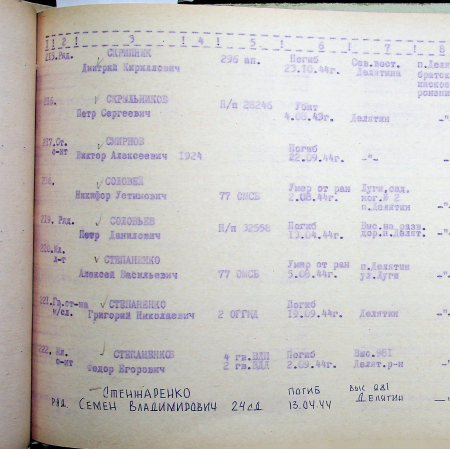 1 2 3 1 4 5 6 7 8
215.Ряд. СКРИПНИК 296 ап. Погиб Сев.вост. п.Деля
Дмитрий Кириллович 23.10.44г. Делятина братск
216. СКРЫЛЬНИКОВ П/п 28246 Убит
Петр Сергеевич 4.08.43г. Делятин -"-
217.Ст. СМИРНОВ Погиб
с-нт Виктор Алексеевич 1924 22.09.44г. -"- -"-
218. СОЛОВЕЙ Умер от ран Луги, сад.
Никифор Устимович 77 ОМСБ 2.08.44г. мог.# 2 -"-
п.Делятин
219. Ряд. СОЛОВЬЕВ П/п 32558 Погиб Выс.на разв.
Петр Данилович 13.04.44г. дор.п.Делят. -"-
220.Мл. СТЕПАНЕНКО Умер от ран п.Делятин
л-т Алексей Васильевич 77 ОМСБ 3.08.44г. ул.Луги -"-
221.Гв.ст-на СТЕПАНЕНКО Погиб
м/сл. Григорий Николаевич 2 ОГГИД 19.09.44г. Делятин -"-
222. Мл. СТЕПАНЕНКОВ 4 гв.ВДП Погиб Выс.981
с-нт Федор Егорович 2 гв.ВДД 2.09.44г. Делят.р-н -"-
СТЕННАРЕНКО ПОГИБ ВЫС 981
РЯД. СЕМЕН ВЛАДИМИРОВИЧ 24 СД 13.04.44 ДЕЛЯТИН